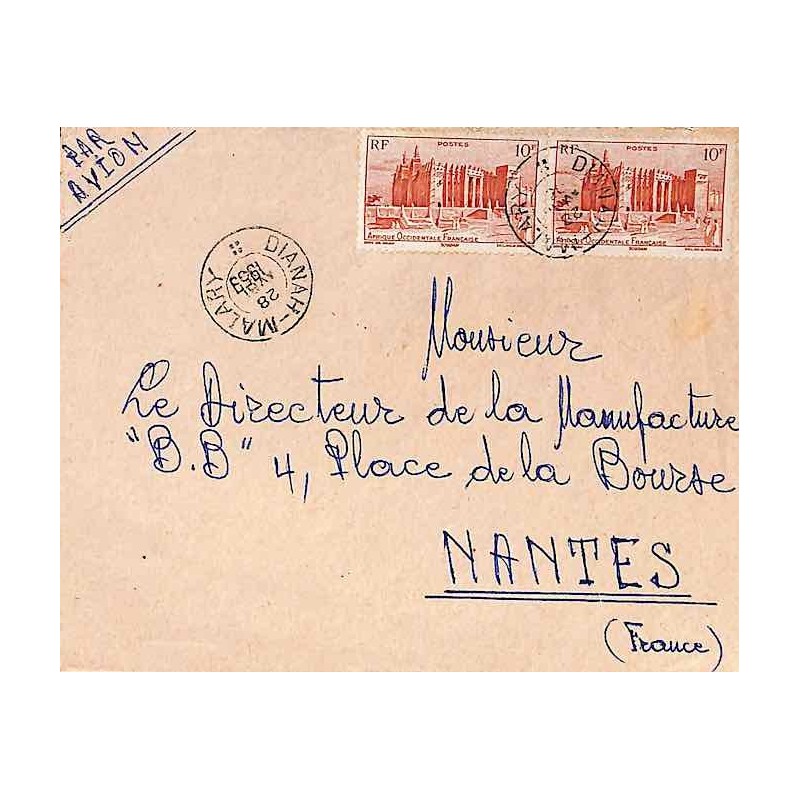 PAR
AVION
RF POSTES 10F
AFRIQUE OCCIDENTALE FRANÇAISE
SOUDAN
RF POSTES 10F
AFRIQUE OCCIDENTALE FRANÇAISE
SOUDAN
DIANAH-MALARY
28
1953
Monsieur
Le Directeur de la Manufacture
"B.B" 4, Place de la Bourse
NANTES
(France)